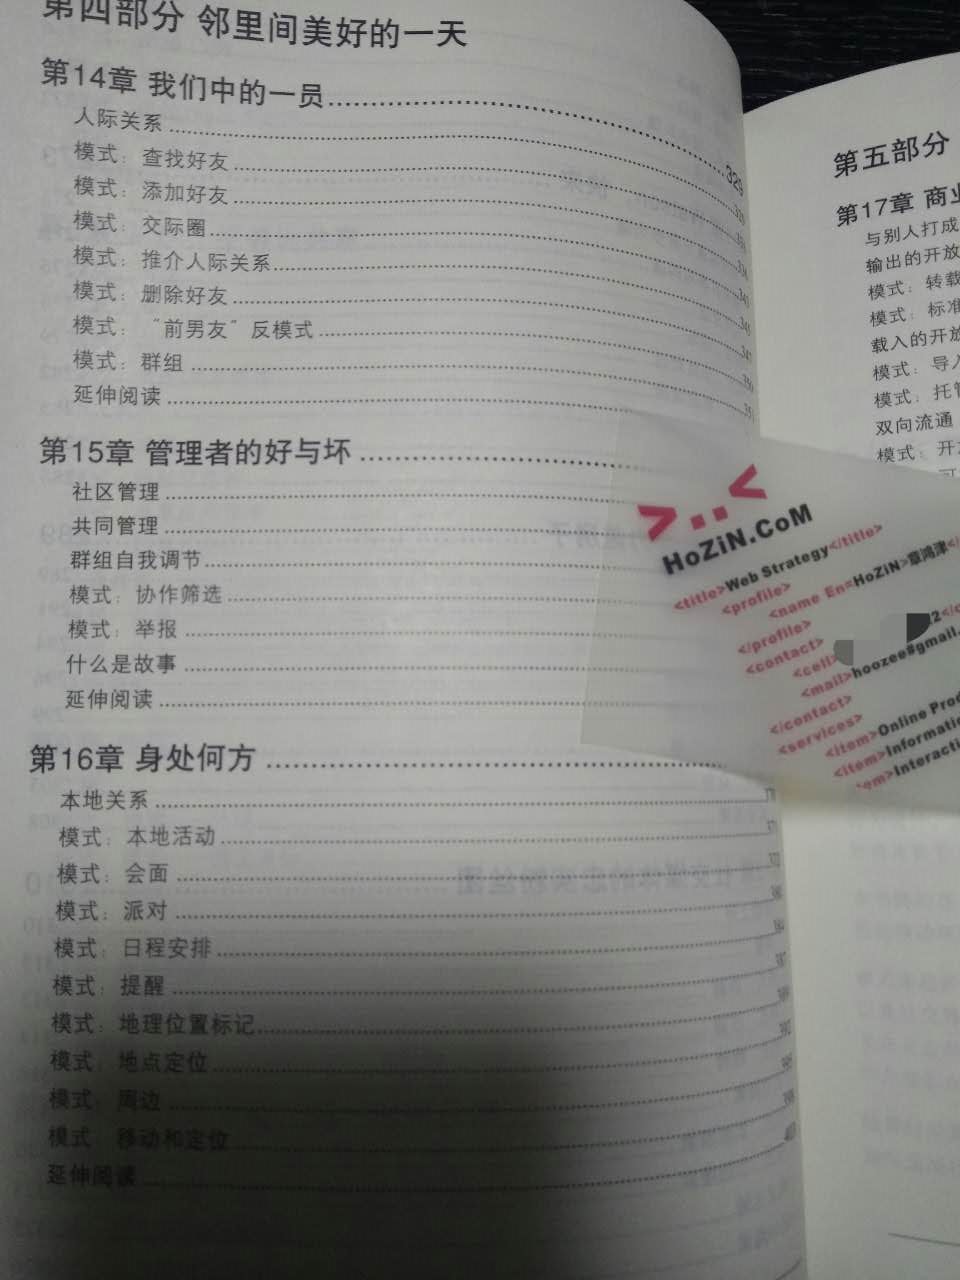 第四部分 邻里间美好的一天
第14章 我们中的一员 329
人际关系
模式：查找好友
模式：添加好友
模式：交际圈
模式：推介人际关系
模式：删除好友
模式：“前男友”反模式
模式：群组
延伸阅读
第15章 管理者的好与坏
社区管理
共同管理
群组自我调节
模式：协作筛选
模式：举报
什么是故事
延伸阅读
第16章 身处何方
本地关系
模式：本地活动
模式：会面
模式：派对
模式：日程安排
模式：提醒
模式：地理位置标记
模式：地点定位
模式：周边
模式：移动和定位
延伸阅读
第五部分
第17章 商业
与别人打成
输出的开放
模式：转载
模式：标准
载入的开放
模式：导入
模式：托管
双向流通
模式：开放
可
>..<
HoZiN.CoM
<title>Web Strategy</title>
<profile>
<name En=HoZiN>章鸿津</
</profile>
<contact>
<cell> 2</c
<mail>hoozee#gmail.
</contact>
<services>
<item>Online Prod
<item>Informatio
em>Interacti